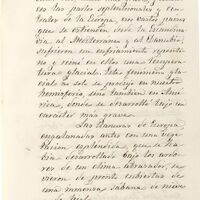 en las partes septentrionales y cen-
trales de la Europa, en vastas zonas
que se extienden desde la Scandina-
via al Mediterraneo y al Danubio,
sufrieron un enfriamiento repenti-
no y reinó en ellas una tempera-
tura glacial. Este fenomeno gla-
cial no solo se produjo en nuestro
hemisferio, sino tambien en Amé-
rica, donde se desarrolló bajo un
caracter mas grave.
Las llanuras de Europa
engalanadas antes con una vege-
tacion esplendida, que se ha-
bia desarrollado bajo los ardo-
res de un clima abrasador, se
vieron de pronto cubiertas de
una inmensa sabana de nieve